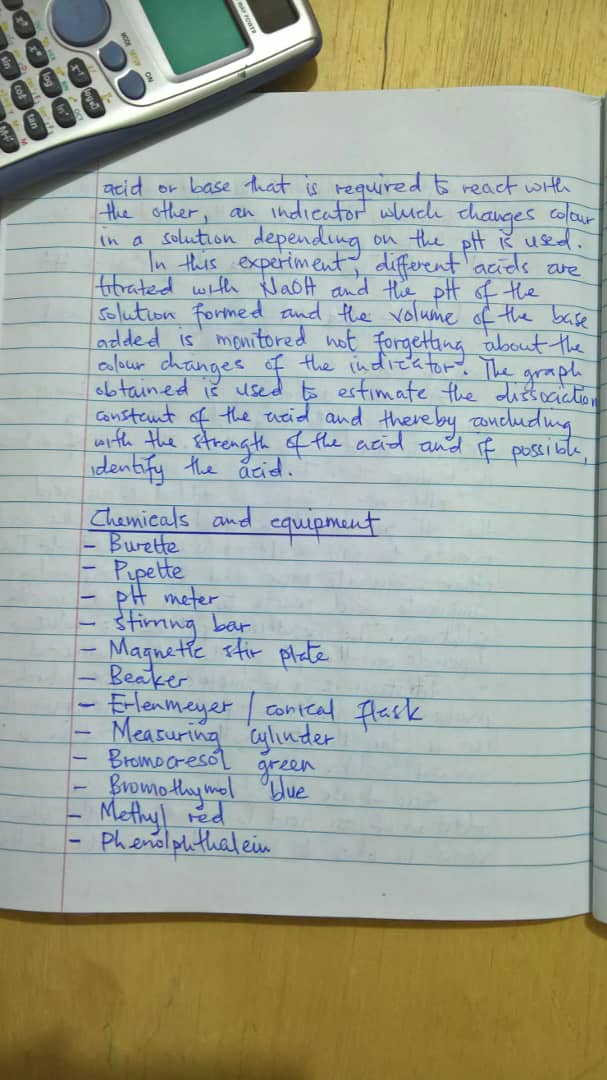 MODE SETUP
ON
sin
cot
tan
log
M+
acid or base that is required to react with
the other, an indicator which changes colour
in a solution depending on the pH is used.
In this experiment, different acids are
titrated with NaOH and the pH of the
solution formed and the volume of the base
added is monitored not forgetting about the
colour changes of the indicator. The graph
obtained is used to estimate the dissociation
constant of the acid and thereby concluding
with the strength of the acid and if possible,
identify the acid.
Chemicals and equipment
- Burette
- Pipette
- pH meter
- stirring bar
- Magnetic stir plate
- Beaker
- Erlenmeyer / conical flask
- Measuring cylinder
- Bromocresol green
- Bromothymol blue
- Methyl red
- Phenolphthalein